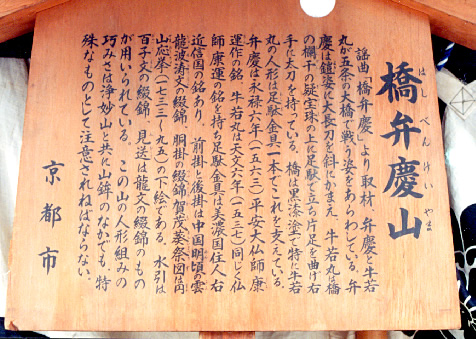 橋弁慶山
はしべんけいやま
謡曲「橋弁慶」より取材、弁慶と牛若
丸が五条の大橋で戦う姿をあらわしている。弁
慶は鎧姿に大長刀を斜にかまえ、牛若丸は橋
の欄干の擬宝珠の上に足駄で立ち片足を曲げ右
手に太刀を持っている。橋は黒漆塗で特に牛若
丸の人形は足駄金具一本でこれを支えている。
弁慶は永禄六年(一五六三)平安大仏師康
運作の銘、牛若丸は天文六年(一五三七)同じく仏
師康運の銘を持ち足駄金具は美濃国住人右
近信国の銘あり、前掛と後掛は中国明頃の雲
龍波涛文の綴錦、胴掛の綴錦賀茂葵祭図は円
山応挙(一七三三〜九五)の下絵である。水引は
百子文の綴錦、見送は龍文の綴錦のもの
が用いられている。この山の人形組みの
巧みさは浄妙山と共に山鉾のなかでも、特
殊なものとして注意されねばならない。
京都市